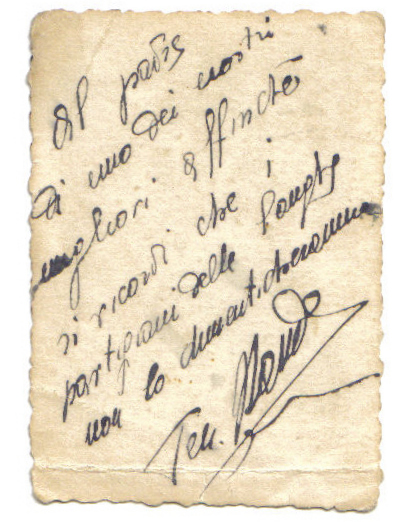 Al padre
di uno dei nostri
migliori affinché
si ricordi che i
partigiani delle Langhe
non lo dimenticheranno
Ten.